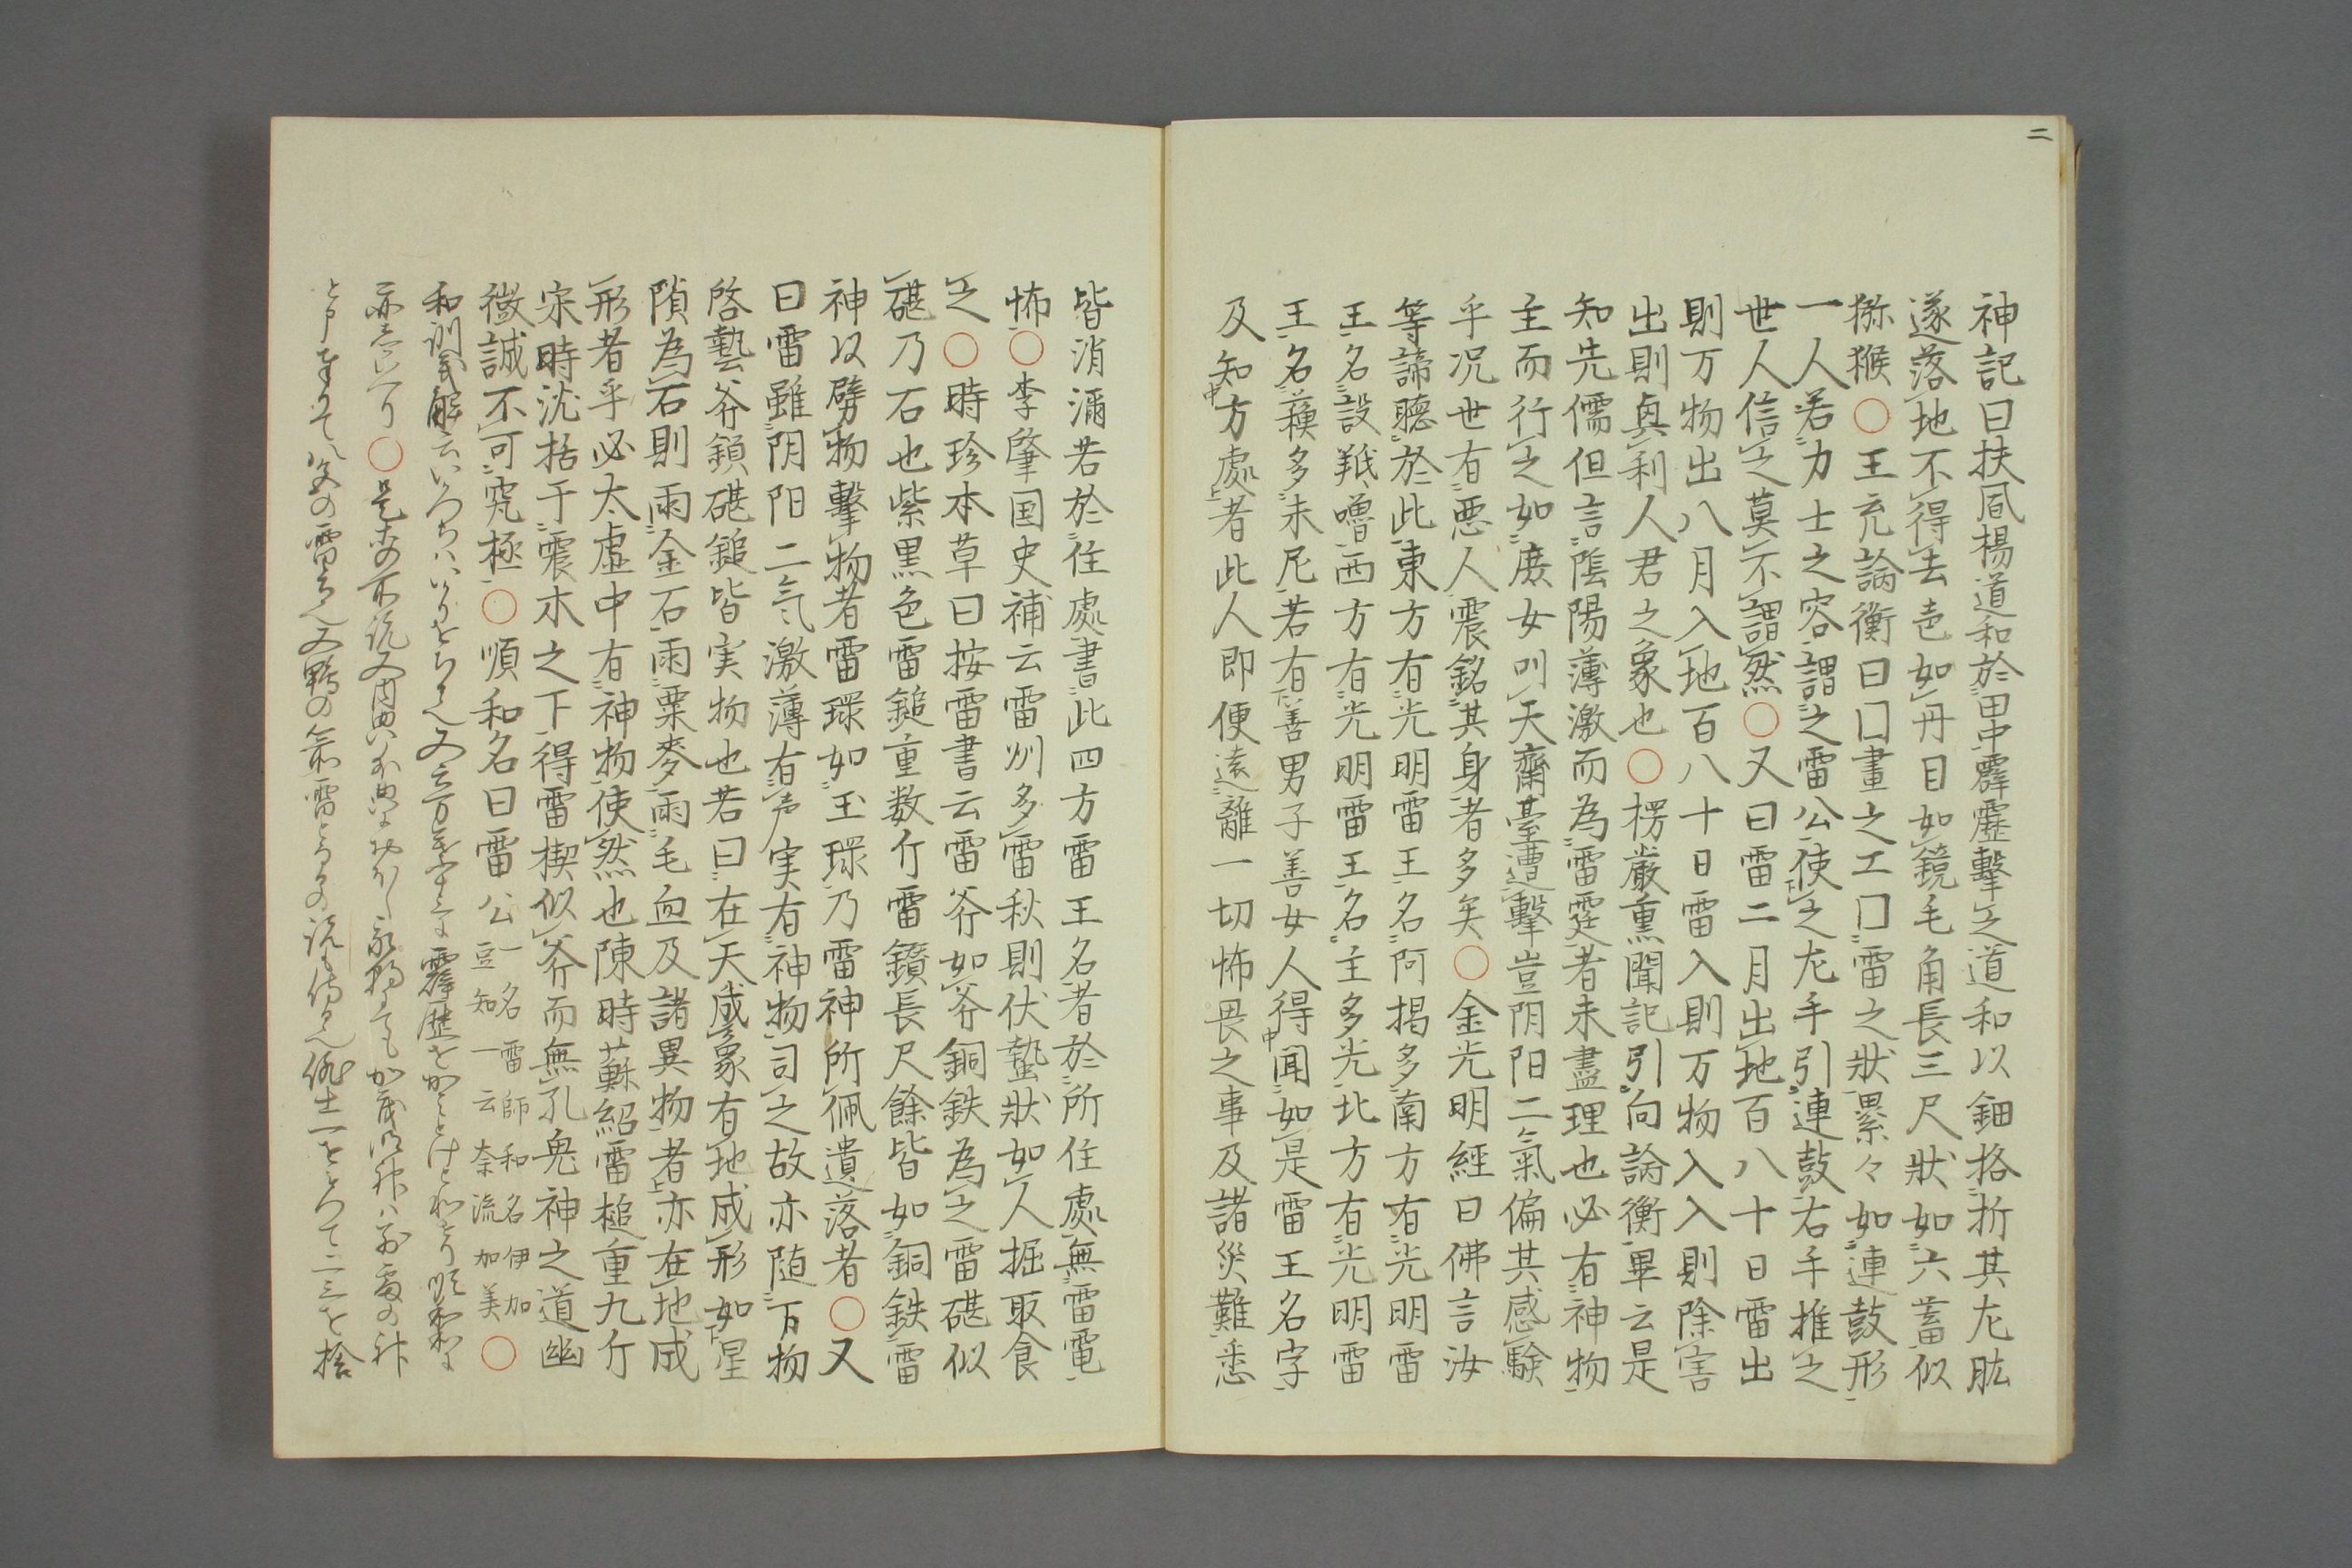 二
神記曰扶風楊道和於田中霹靂擊之道和以鈿格折其左肱
遂落地不得去色如丹目如鏡毛角長三尺狀如六畜似
猕猴○王充論衡曰圖畫之工図雷之狀累々如連鼓形
一人若力士之容謂之雷公使之左手引連鼓右手推之
世人信之莫不謂然○又曰雷二月出地百八十日雷出
則万物出八月入地百八十日雷入則万物入入則除害
出則與利人君之象也○楞嚴熏聞記引向論衡畢云是
知先儒但言陰陽薄激而為雷霆者未盡理也必有神物
主而行之如庶女叫天齋臺遭擊豈阴阳二氣偏其感驗
乎况世有惡人震銘其身者多矣○金光明經曰佛言汝
等諦聽於此東方有光明雷王名阿揭多南方有光明雷
王名設羝嚕西方有光明雷王名主多光北方有光明雷
王名蘓多末尼若有善男子善女人得聞如是雷王名字
及知方處者此人即便遠離一切怖畏之事及諸災難悉
皆消瀰若於住處書此四方雷王名者於所住處無雷電
怖○李肇国史補云雷州多雷秋則伏蟄狀如人掘取食
之○時珍本草曰按雷書云雷斧如斧銅鉄為之雷碪似
碪乃石也紫黒色雷鎚重数斤雷鑽長尺餘皆如銅鉄雷
神以劈物擊物者雷環如玉環乃雷神所佩遺落者○又
曰雷雖阴阳二气激薄有声実有神物司之故亦随万物
啓蟄斧鎖碪鎚皆実物也若曰在天成象有地成形如星
隕為石則雨金石雨粟麥雨毛血及諸異物者亦在地成
形者乎必太虚中有神物使然也陳時蘇紹雷槌重九斤
宋時沈括于震木之下得雷楔似斧而無孔鬼神之道幽
微誠不可究極○順和名曰雷公一名雷師和名伊加豆知一云奈流加美○
和訓解云いかつちハいかを也又云万葉に霹靂をかみとけと和訓順和に
亦云り○是等の所説又内典外典におゐし
と申奉りて父の雷也又鴨の雷となるの説も侍る也二三を捨